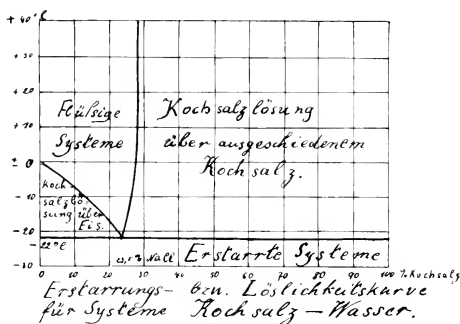 + 40°C
+ 30
+ 20
+ 10
± 0
- 10
- 20
- 22°C
- 30
Flüssige
Systeme
Kochsalzlösung
über ausgeschiedenem
Kochsalz.
Koch
salzlö-
sung über
Eis.
Erstarrte Systeme
0 10 20 30 40 50 60 70 80 90 100 % Kochsalz
Erstarrungs- bzw. Löslichkeitskurve
für Systeme Kochsalz – Wasser.